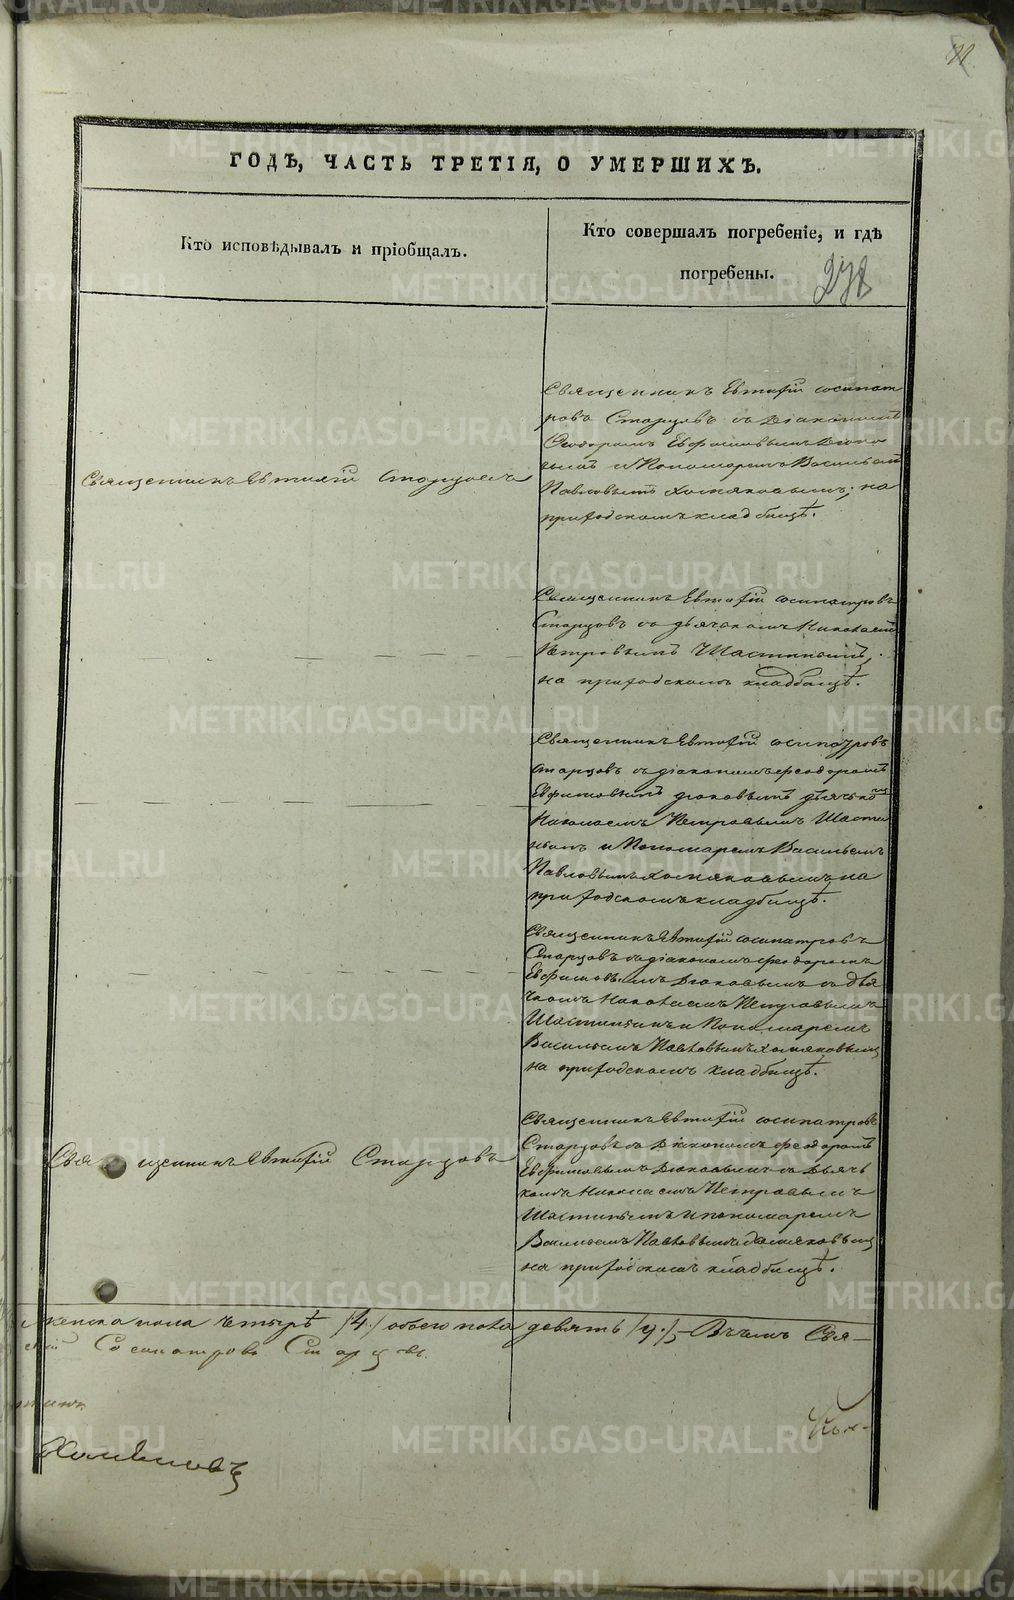 ГОДЪ, ЧАСТЬ ТРЕТІЯ, О УМЕРШИХЪ.
Кто исповѣдывалъ и пріобщалъ.
Кто совершалъ погребеніе, и гдѣ
погребены.
278
Священникъ Евтихій Старцовъ
Священникъ Евтихій Сосипат
ровъ Старцовъ съ Діакономъ
Ѳеодоромъ
вымъ и Пономаремъ Васильемъ
Павловымъ Хомяковымъ; на
приходскомъ кладбищѣ.
Священникъ Евтихій Сосипатровъ
Старцовъ съ дьячкомъ Николаемъ
Петровымъ Шастинымъ,
на приходскомъ кладбищѣ.
Священникъ Евтихій Сосипатровъ
Старцовъ съ діакономъ Ѳеодоромъ
Евфимовымъ дьячко
Николаемъ Петровымъ Шасти
нымъ и Пономаремъ Васильемъ
Павловымъ Хомяковымъ на
приходскомъ кладбищѣ.
Священникъ Евтихій Сосипатровъ
Старцовъ съ діакономъ Ѳеодоромъ
Евфимовымъ съ Дья
чкомъ Николаемъ Петровымъ
Шастинымъ и Пономаремъ
Васильемъ Павловымъ Хомяковымъ
на приходскомъ кладбищѣ.
Священникъ Евтихій Старцовъ
Священникъ Евтихій Сосипатровъ
Старцовъ съ Діакономъ Ѳеодоромъ
Евфимовымъ съ Дьяч
комъ Николаемъ Петровымъ
Шастинымъ и пономаремъ
Васильемъ Павловымъ Хомяковымъ
на приходскомъ кладбищѣ.
женска пола четырѣ /4./ обоего пола девять /9./ Свя-
Сосипатровъ Старцовъ.
METRIKI.GASO-URAL.RU